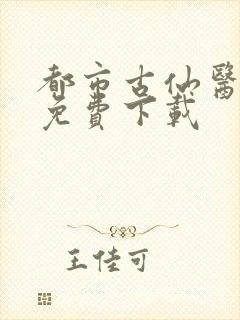 都市古仙醫
免費下載
王佳可